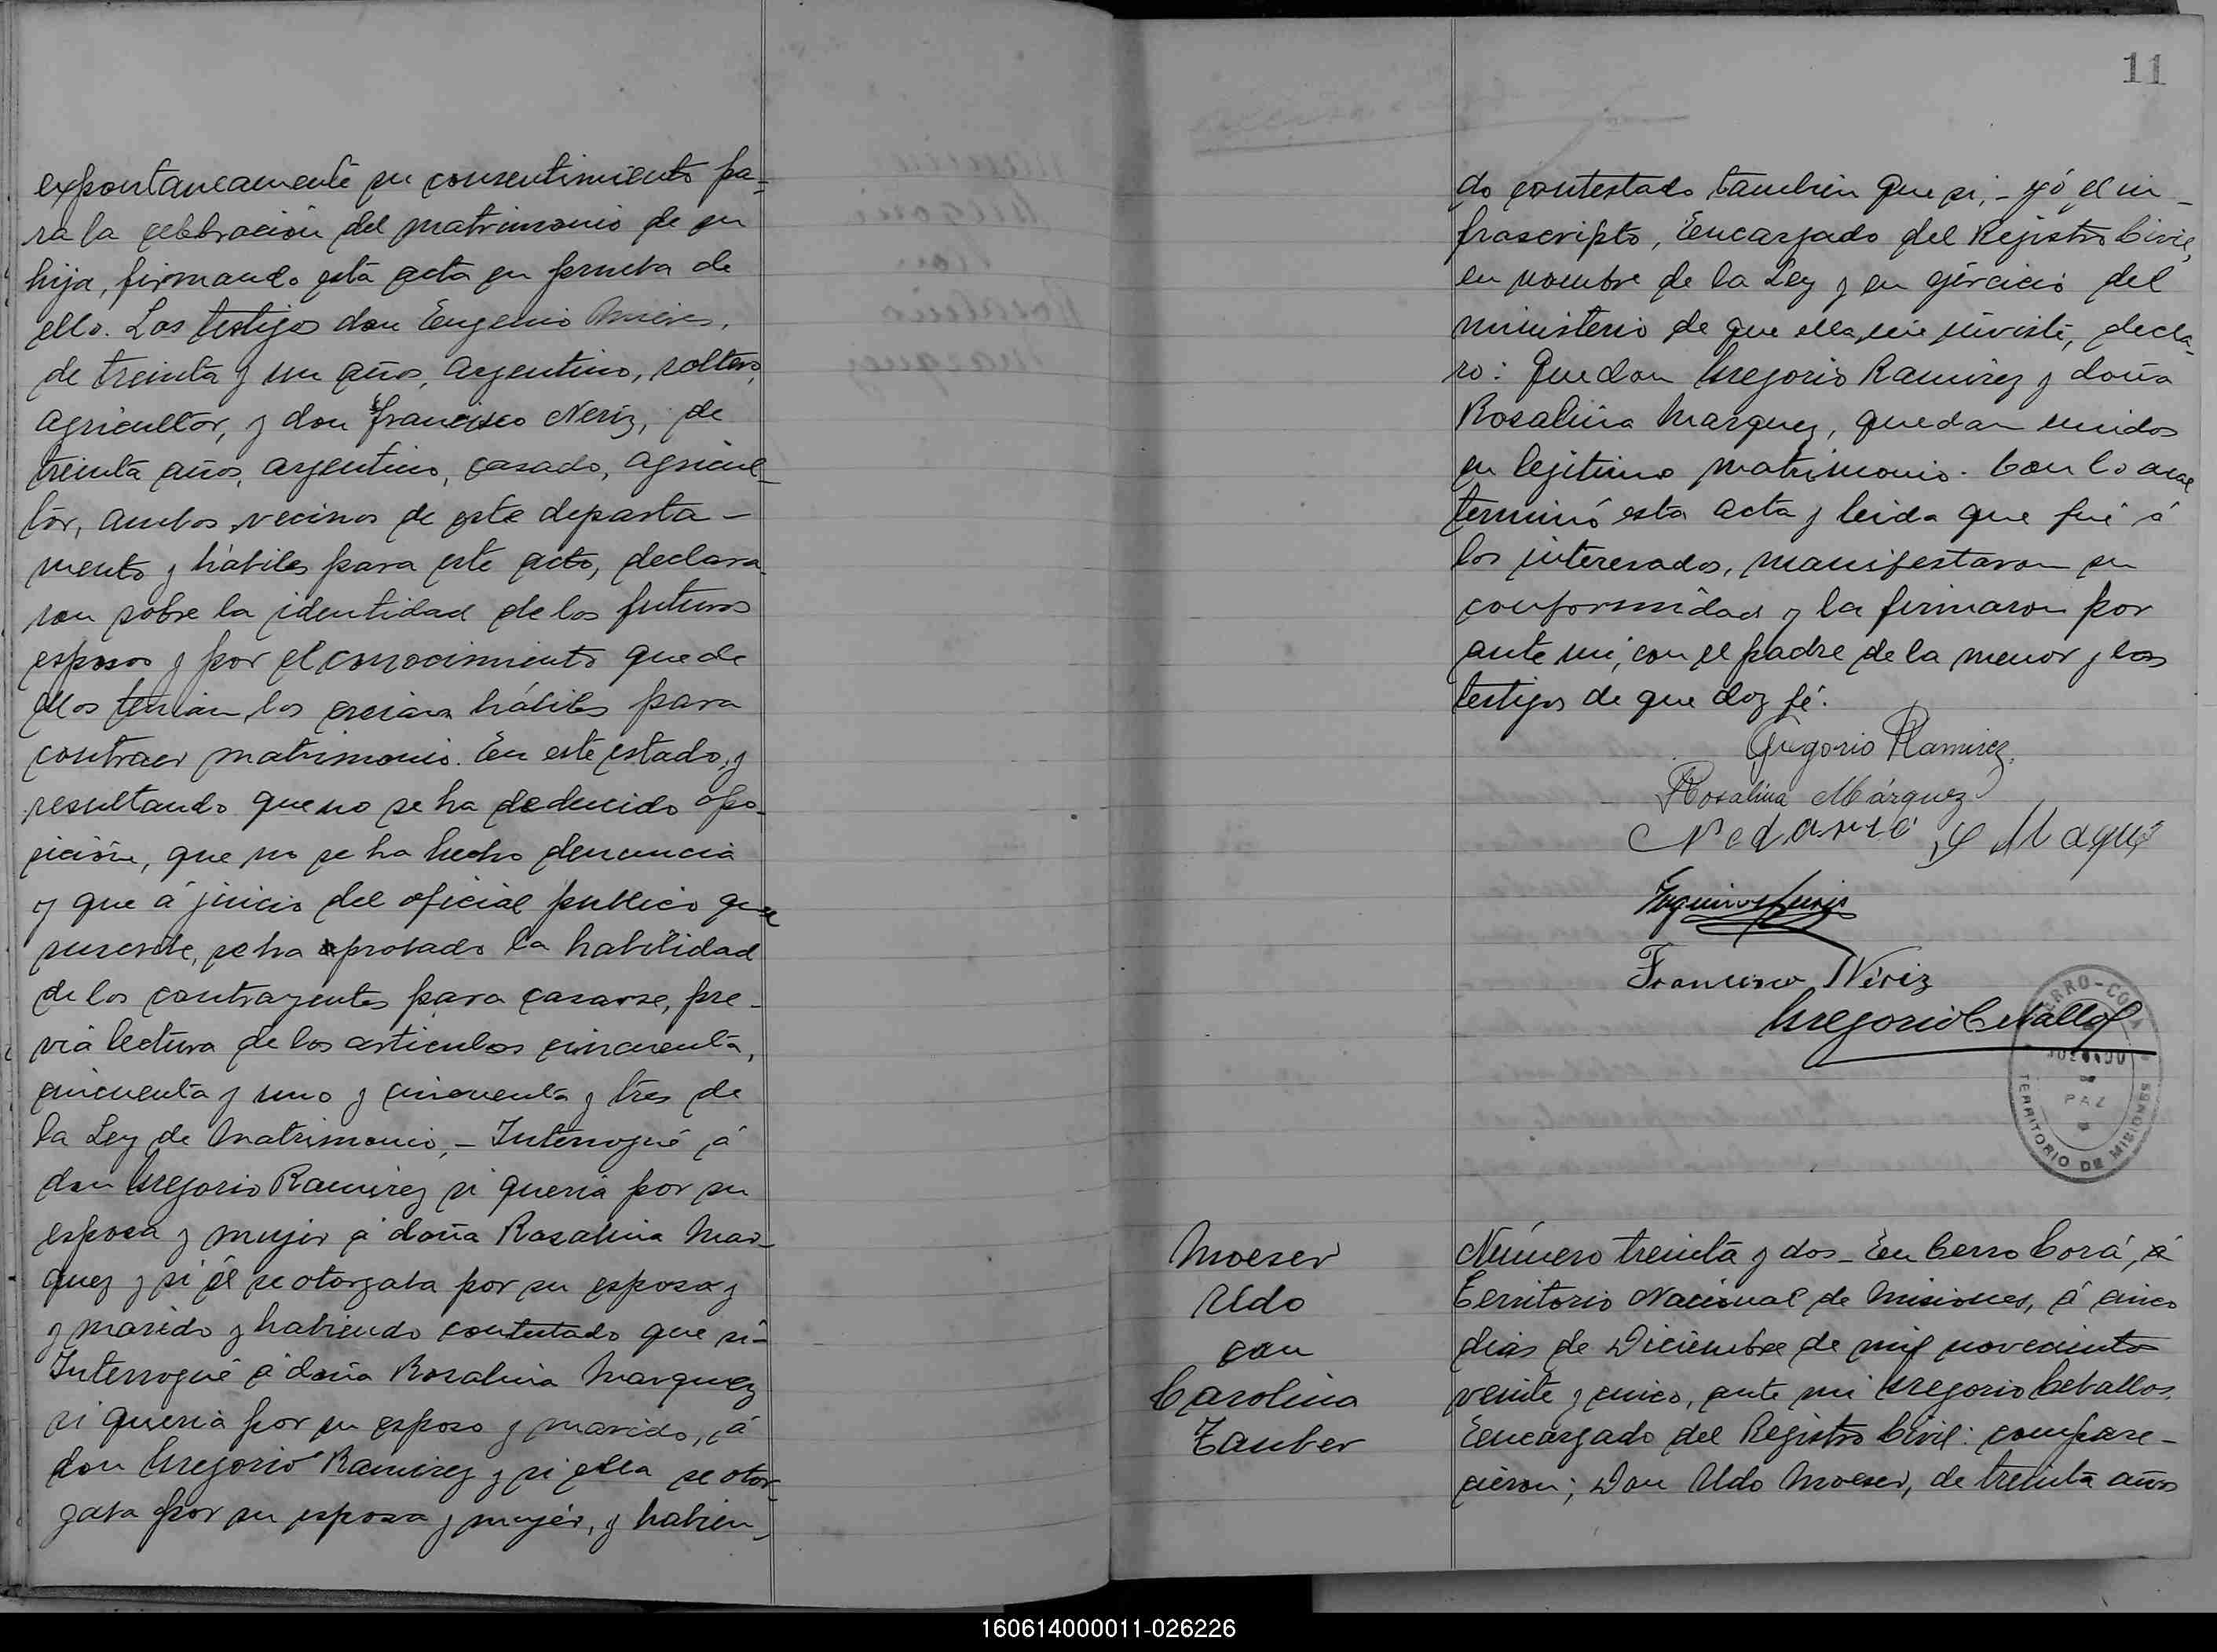 expontaneamente su consentimiento pa=
ra la celebración del matrimonio de su
hija, firmando esta acta en prueba de
ello. Los testigos don Eugenio
de treinta y un años, Argentino, soltero,
agricultor, y don Francisco Neriz, de
treinta años, argentino, casado, agricul-
tor, ambos vecinos de este departa-
mento y hábiles para este acto, declara-
ron sobre la identidad de los futuros
esposos y por el conocimiento que de
ellos tenian, los creian hábiles para
contraer matrimonio. En este estado, y
resultando que no se ha deducido opo-
sición, que no se ha hecho denuncia
y que á juicio del oficial publico que
suscribe, se ha aprobado la habilidad
de los contrayentes para casarse, pre-
via lectura de los articulos cincuenta,
cincuenta y uno y cincuenta y tres de
la Ley de Matrimonio, - Interrogué á
don Gregorio Ramirez si queria por su
esposa y mujer á doña Rosalina Mar-
quez y si él se otorgaba por su esposo y
y marido y habiendo contestado que si-
Interrogué á doña Rosalina Marquez
si queria por su esposo y marido, á
don Gregorio Ramirez y si ella se otor-
gaba por su esposa y mujer, y habien-
11
do contestado tambien que si, - yó el in-
frascripto, Encargado del Registro Civil,
en nombre de la Ley y en ejercicio del
ministerio de que ella me inviste, decla-
ro: Que don Gregorio Ramirez y doña
Rosalina Marquez, quedan unidos
en legitimo matrimonio. Con lo cual
terminó esta acta y leida que fué á
los interesados, manifestaron su
conformidad y la firmaron por
ante mi, con el padre de la menor y los
testigos de que doy fé.
Gregorio Ramirez
Rosalina Márquez
Francisco Neriz
Gregorio Ceballos
CERRO-CORÁ
JUZGADO
DE
PAZ
TERRITORIO DE MISIONES
Moeser
Udo
con
Carolina
Tauber
Número treinta y dos - En Cerro Corá, á
Territorio Nacional de Misiones, á cinco
dias de Diciembre de mil novecientos
veinte y cinco, ante mi Gregorio Ceballos,
Encargado del Registro Civil: compare-
cieron; Don Udo Moeser, de treinta años
160614000011-026226